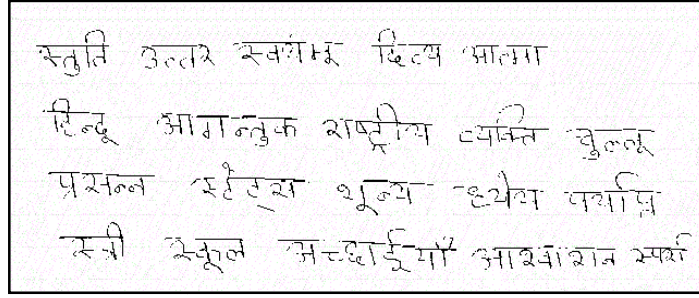 स्तुति उत्तर स्वयंभू दिव्य आत्मा
हिन्दू आगन्तुक राष्ट्रीय व्यक्ति चुल्लू
प्रसन्न स्टेट्स शून्य ध्येय पर्याप्त
स्त्री स्कूल अच्छाईयाँ आश्वासन स्पर्श